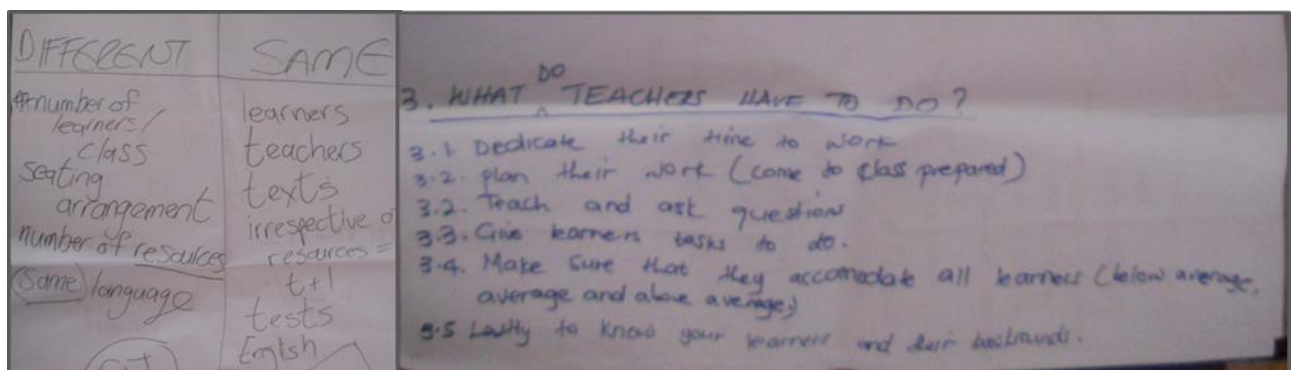 DIFFERENT
number of
learners/
class
seating
arrangement
number of resources
(Same) language
SAME
learners
teachers
texts
irrespective of
resources =
t+l
tests
English
DO
3. WHAT ^ TEACHERS HAVE TO DO?
3.1 Dedicate their time to work
3.2. plan their work (come to class prepared)
3.2. Teach and ask question
3.3. Give learners tasks to do.
3.4. Make sure that they accomodate all learners (below average,
average and above average)
3.5 Lastly to know your learners and their